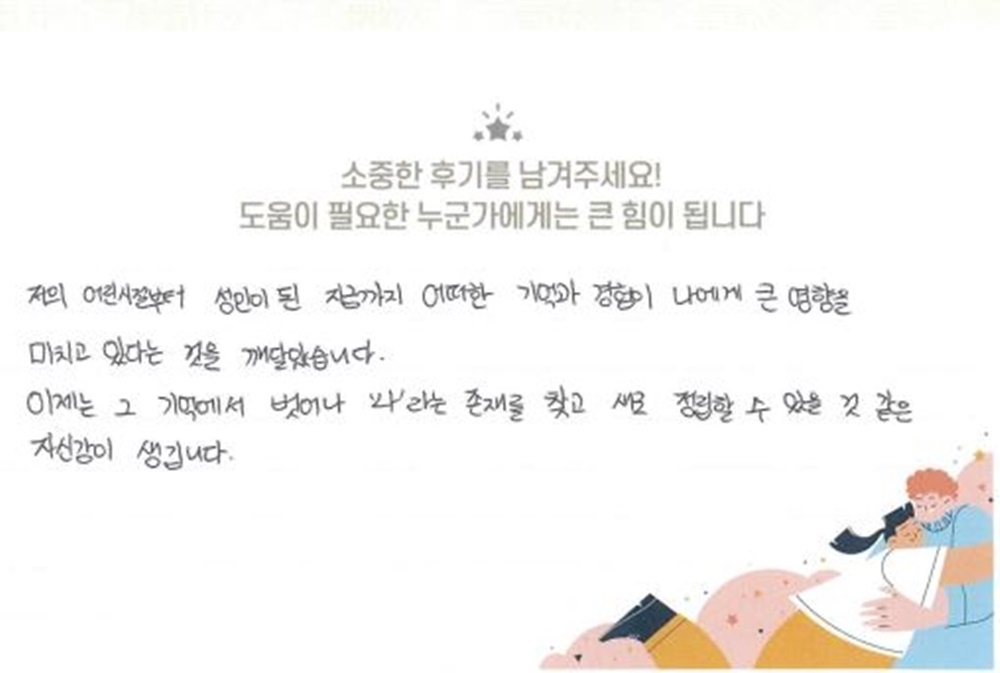 소중한 후기를 남겨주세요!
도움이 필요한 누군가에게는 큰 힘이 됩니다
저의 어린시절부터 성인이 된 지금까지 어떠한 기억과 경험이 나에게 큰 영향을
미치고 있다는 것을 깨달았습니다.
이제는 그 기억에서 벗어나 '나'라는 존재를 찾고 새로 정립할 수 있을 것 같은
자신감이 생깁니다.